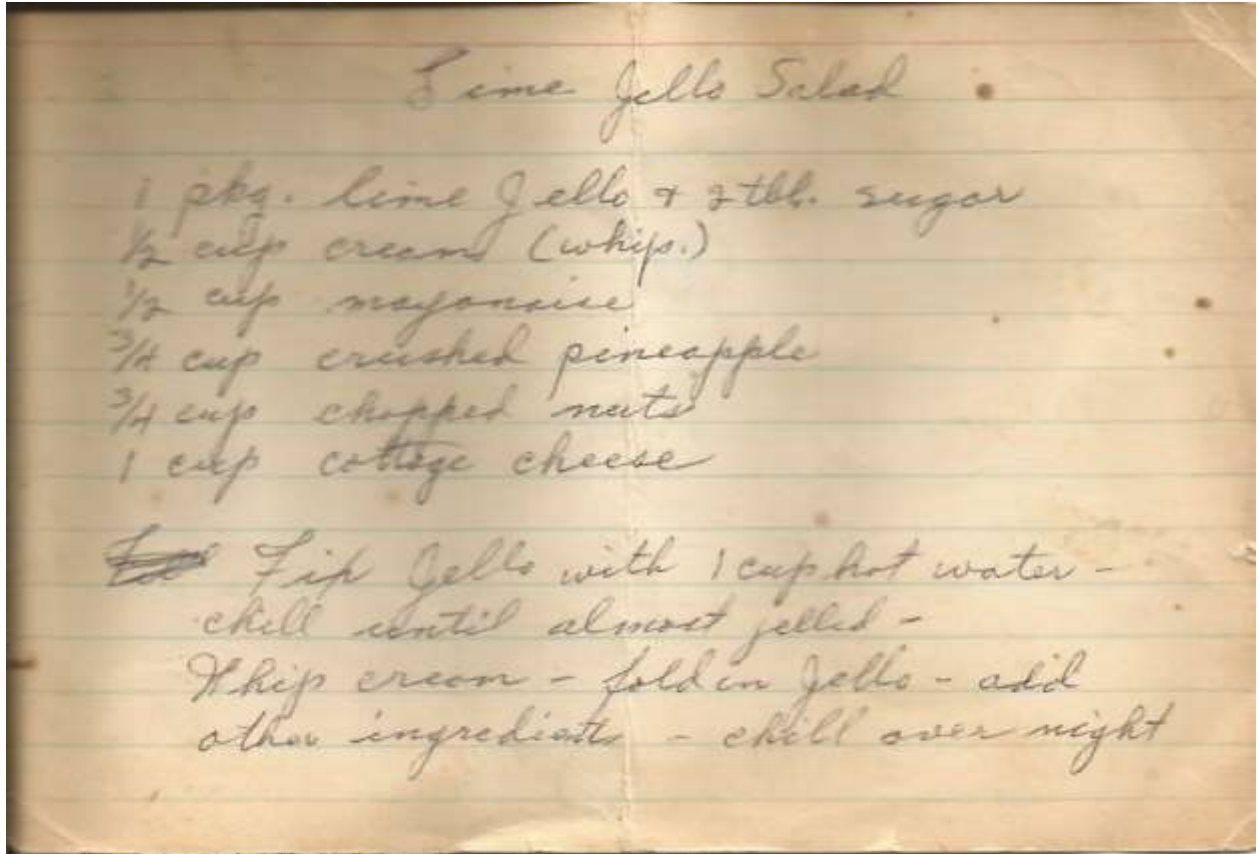 Lime Jello Salad
1 pkg. lime Jello & 2 tbl. sugar
1/2 cup cream (whip.)
1/2 cup mayonaise
3/4 cup crushed pineapple
3/4 cup chopped nuts
1 cup cottage cheese
Fix Jello with 1 cup hot water -
chill until almost jelled -
Whip cream - fold in Jello - add
other ingredients - chill over night